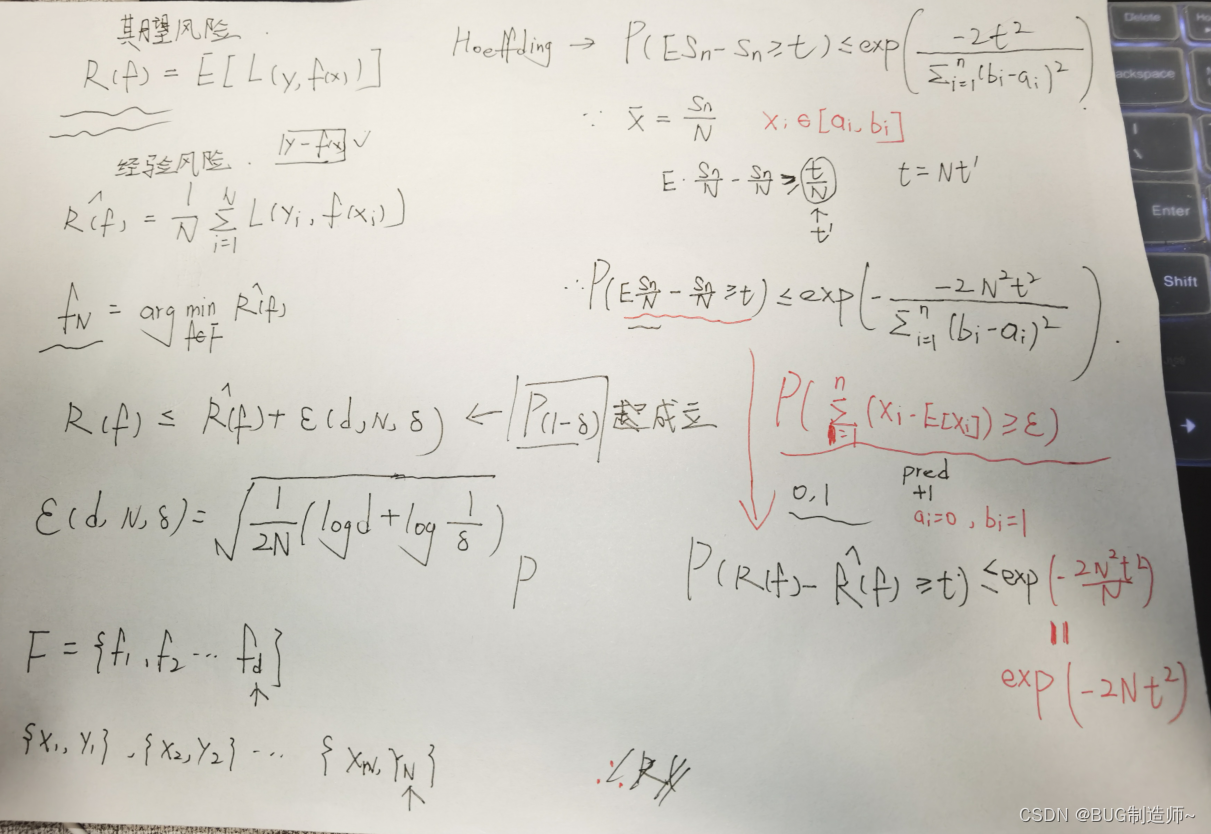 期望风险.
R(f) = E[L(y,f(x))]
经验风险. |y-f(x)| ✓
R̂(f) = 1/N ∑_{i=1}^{N} L(y_i, f(x_i))
f_N = arg min_{f∈F} R̂(f)
R(f) ≤ R̂(f) + ε(d,N,δ) ← P(1-δ) 成立
ε(d,N,δ) = √(1/2N (log d + log 1/δ))
P
F = {f_1, f_2 ⋯ f_d}
↑
{x_1, y_1}, {x_2, y_2} ⋯ {x_N, y_N}
↑
Hoeffding → P(ES_n - S_n ≥ t) ≤ exp(-2t²/∑_{i=1}^{n}(b_i-a_i)²)
∵ x̄ = S_n/N x_i ∈ [a_i, b_i]
E·S_n/N - S_n/N ≥ t/N t = Nt'
↑
t'
∴ P(E S_n/N - S_n/N ≥ t) ≤ exp(- -2N²t²/∑_{i=1}^{n}(b_i-a_i)²).
P(∑_{i=1}^{n}(x_i - E[x_i]) ≥ ε)
0,1 pred
+1
a_i=0, b_i=1
P(R(f) - R̂(f) ≥ t) ≤ exp(-2N²t²/N)
||
exp(-2Nt²)
∴
Delete
ackspace
Enter
Shift
CSDN @BUG制造师~